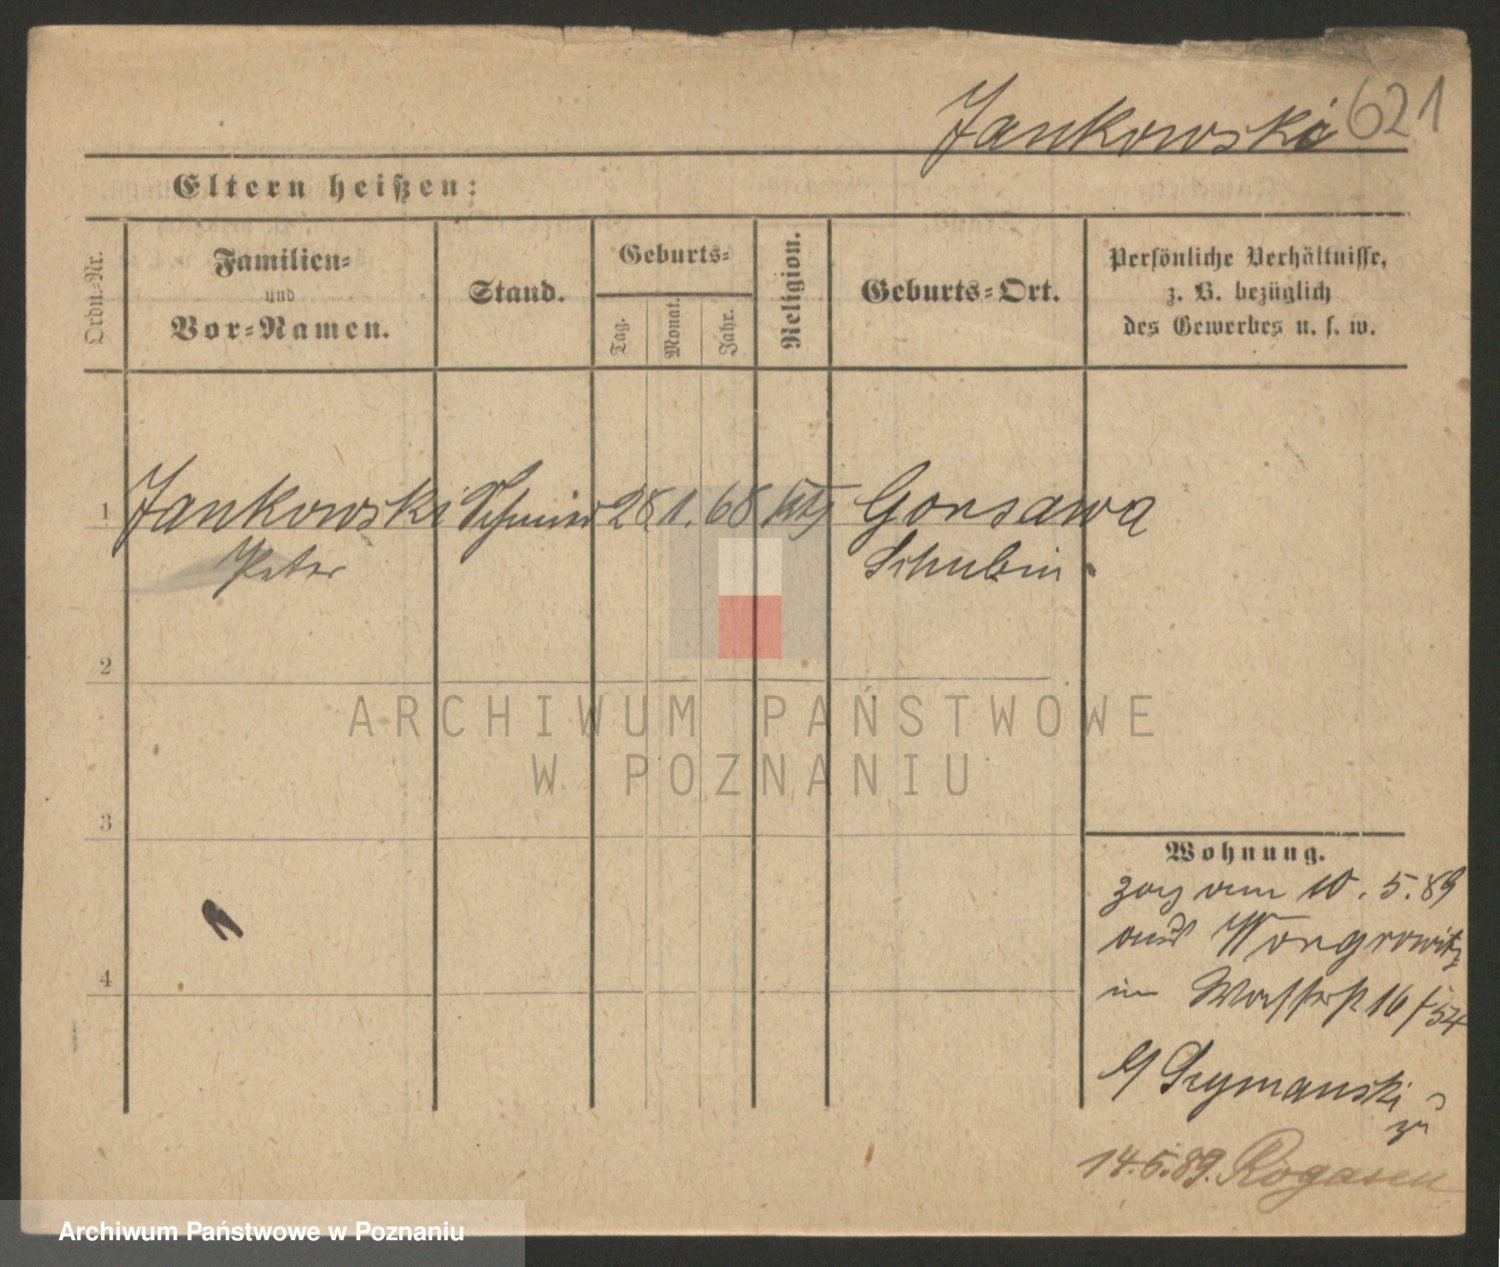 Jankowski 621
Eltern heißen:
Ordn.-Nr.
Familien-
und
Vor-Namen.
Stand.
Geburts-
Tag.
Monat.
Jahr.
Religion.
Geburts-Ort.
Persönliche Verhältnisse,
z. B. bezüglich
des Gewerbes u. s. w.
1 Jankowski 28 1. 68 ktl Gonsawa
Peter Schubin
2
ARCHIWUM PAŃSTWOWE
W POZNANIU
3
Wohnung.
zog am 10. 5. 89
aus Wongrowitz
in 16/
Szymanski
zu
4
14.5.89. Rogasen
Archiwum Państwowe w Poznaniu